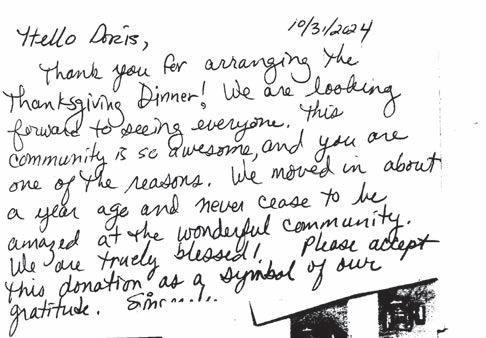 10/31/2024
Hello Doris,
Thank you for arranging the
Thanksgiving Dinner! We are looking
forward to seeing everyone. This
community is so awesome, and you are
one of the reasons. We moved in about
a year ago and never cease to be
amazed at the wonderful community.
We are truely blessed! Please accept
this donation as a symbol of our
gratitude.